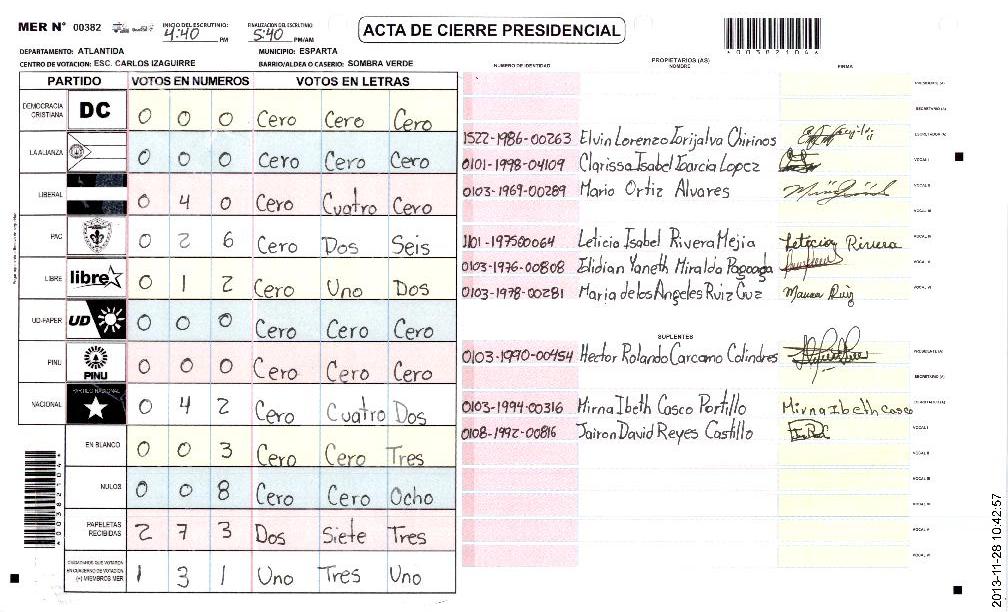 MER N° 00382
INICIO DEL ESCRUTINIO
4:40 PM
FINALIZACION DEL ESCRUTINIO
5:40 PM/AM
ACTA DE CIERRE PRESIDENCIAL
*00382104*
DEPARTAMENTO: ATLANTIDA
MUNICIPIO: ESPARTA
CENTRO DE VOTACION: ESC. CARLOS IZAGUIRRE
BARRIO/ALDEA O CASERIO: SOMBRA VERDE
PARTIDO VOTOS EN NUMEROS VOTOS EN LETRAS
DEMOCRACIA CRISTIANA DC 0 0 0 Cero Cero Cero
LA ALIANZA 0 0 0 Cero Cero Cero
LIBERAL 0 4 0 Cero Cuatro Cero
PAC 0 2 6 Cero Dos Seis
LIBRE libre 0 1 2 Cero Uno Dos
UD-FAPER UD 0 0 0 Cero Cero Cero
PINU PINU 0 0 0 Cero Cero Cero
NACIONAL PARTIDO NACIONAL 0 4 2 Cero Cuatro Dos
EN BLANCO 0 0 3 Cero Cero Tres
NULOS 0 0 8 Cero Cero Ocho
PAPELETAS RECIBIDAS 2 7 3 Dos Siete Tres
CIUDADANOS QUE VOTARON EN CUADERNO DE VOTACION (+) MIEMBROS MER 1 3 1 Uno Tres Uno
*00382104*
PROPIETARIOS (AS)
NUMERO DE IDENTIDAD NOMBRE FIRMA
PRESIDENTE (A)
SECRETARIO (A)
1522-1986-00263 Elvin Lorenzo Grijalva Chirinos ESCRUTADOR (A)
0101-1998-04109 Clarissa Isabel Garcia Lopez VOCAL I
0103-1969-00289 Mario Ortiz Alvares VOCAL II
VOCAL III
1101-197500064 Leticia Isabel Rivera Mejia Leticia Rivera VOCAL IV
0103-1976-00808 Yaneth Miralda VOCAL V
0103-1978-00281 Maria de los Angeles Ruiz Cruz Ruiz VOCAL VI
SUPLENTES
0103-1990-00454 Hector Rolando Carcamo Colindres PRESIDENTE (A)
SECRETARIO (A)
0103-1994-00316 Mirna Ibeth Casco Portillo Mirna Ibeth Casco ESCRUTADOR (A)
0108-1992-00816 Jairon David Reyes Castillo VOCAL I
VOCAL II
VOCAL III
VOCAL IV
VOCAL V
VOCAL VI
2013-11-28 10:42:57